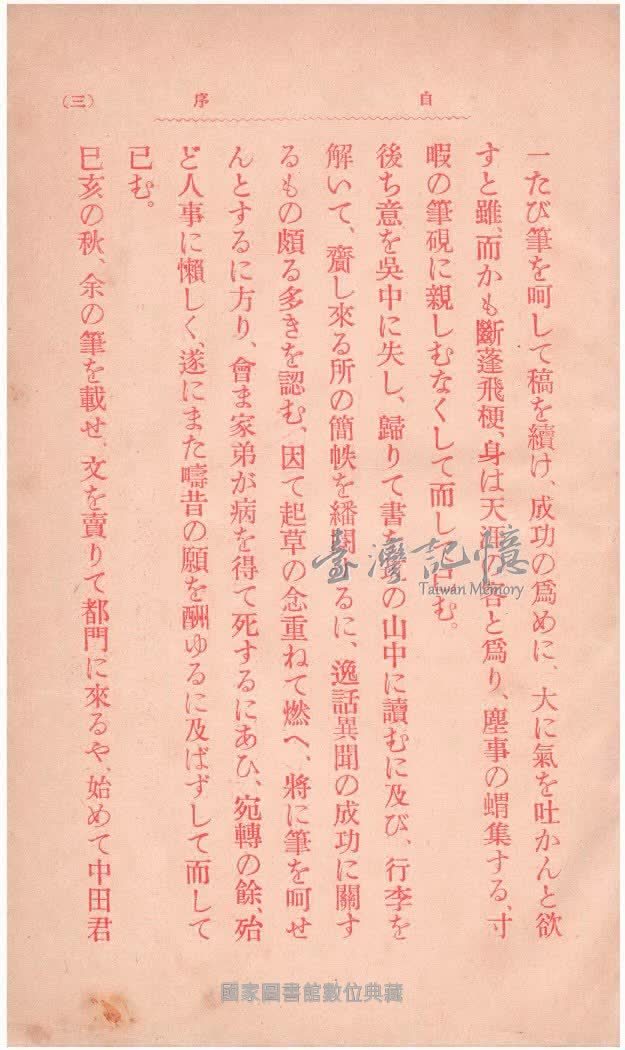 自序
(三)
一たび筆を呵して稿を續け、成功の爲めに、大に氣を吐かんと欲
すと雖、而かも斷蓬飛梗、身は天涯の客と爲り、塵事の蝟集する、寸
暇の筆硯に親しむなくして而して已む。
後ち意を吳中に失し、歸りて書を の山中に讀むに及び、行李を
解いて、齎し來る所の簡帙を繙閱するに、逸話異聞の成功に關す
るもの頗る多きを認む、因て起草の念重ねて燃へ、將に筆を呵せ
んとするに方り、會ま家弟が病を得て死するにあひ、宛轉の餘、殆
ど人事に懶しく、遂にまた疇昔の願を酬ゆるに及ばずして而して
已む。
巳亥の秋、余の筆を載せ、文を賣りて都門に來るや、始めて中田君
臺灣記憶
Taiwan Memory
國家圖書館數位典藏